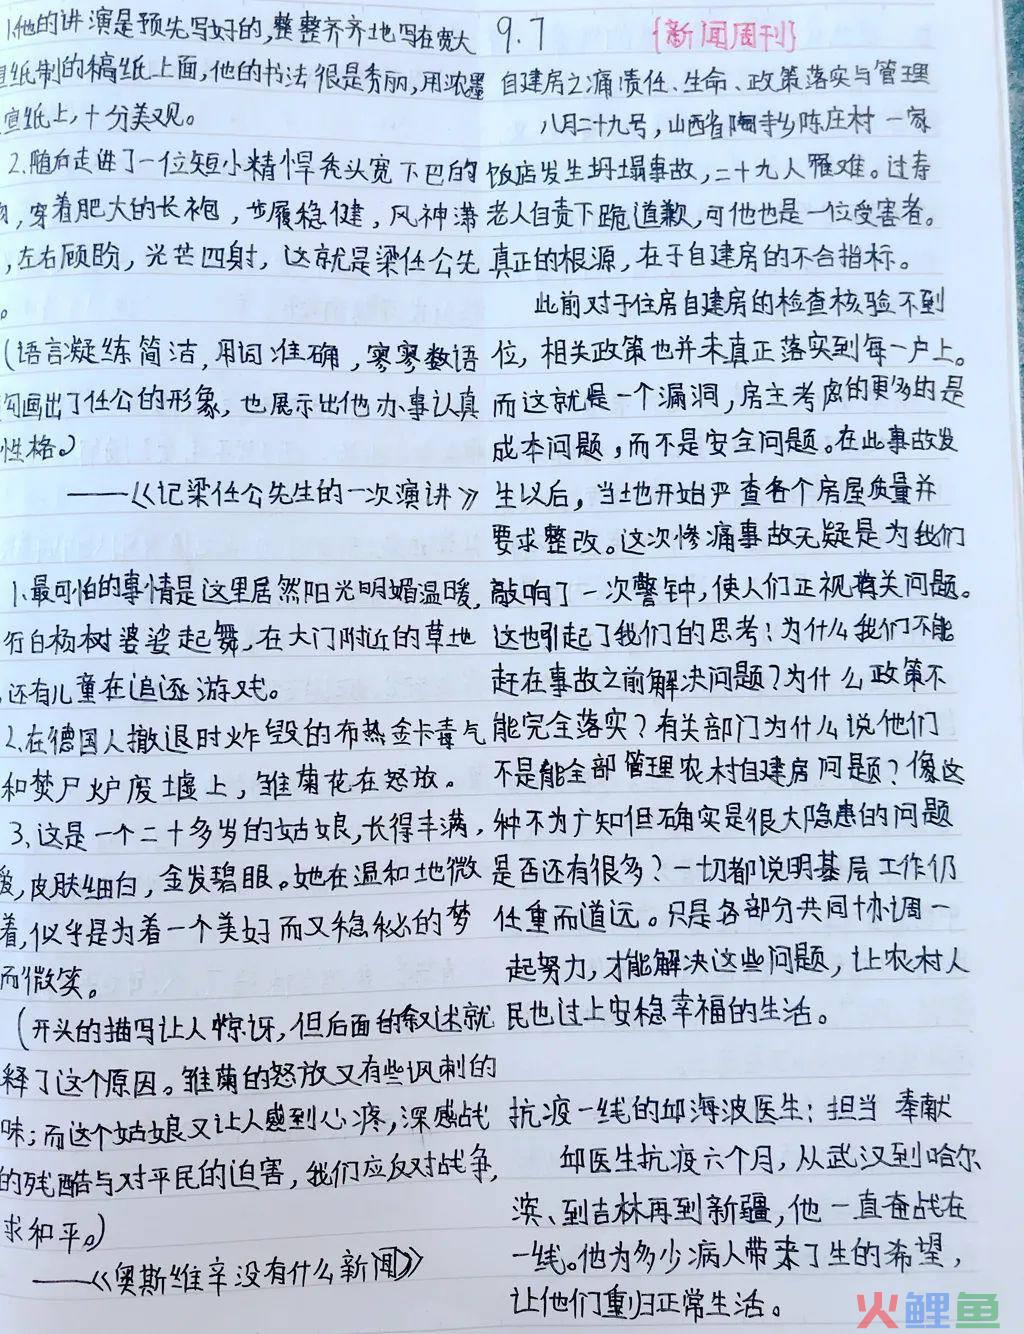 1.他的讲演是预先写好的,整整齐齐地写在宽大
宣纸制的稿纸上面,他的书法很是秀丽,用浓墨
宣纸上,十分美观。
2.随后走进了一位短小精悍秃头宽下巴的
,穿着肥大的长袍,步履稳健,风神潇
,左右顾盼,光芒四射,这就是梁任公先
。
(语言凝练简洁,用词准确,寥寥数语
勾画出了任公的形象,也展示出他办事认真
性格。)
——《记梁任公先生的一次演讲》
1、最可怕的事情是这里居然阳光明媚温暖,
行白杨树婆娑起舞,在大门附近的草地
,还有儿童在追逐游戏。
2.在德国人撤退时炸毁的布热金卡毒气
和焚尸炉废墟上,雏菊花在怒放。
3、这是一个二十多岁的姑娘,长得丰满,
爱,皮肤细白,金发碧眼。她在温和地微
着,似乎是为着一个美好而又稳秘的梦
而微笑。
(开头的描写让人惊讶,但后面的叙述就
释了这个原因。雏菊的怒放又有些讽刺的
味;而这个姑娘又让人感到心疼,深感战
的残酷与对平民的迫害,我们应反对战争,
求和平。)
——《奥斯维辛没有什么新闻》
9.7 {新闻周刊}
自建房之痛责任、生命、政策落实与管理
八月二十九号,山西省陶寺乡陈庄村一家
饭店发生坍塌事故,二十九人罹难。过寿
老人自责下跪道歉,可他也是一位受害者。
真正的根源,在于自建房的不合指标。
此前对于住房自建房的检查核验不到
位,相关政策也并未真正落实到每一户上。
而这就是一个漏洞,房主考虑的更多的是
成本问题,而不是安全问题。在此事故发
生以后,当地开始严查各个房屋质量并
要求整改。这次惨痛事故无疑是为我们
敲响了一次警钟,使人们正视相关问题。
这也引起了我们的思考:为什么我们不能
赶在事故之前解决问题?为什么政策不
能完全落实?有关部门为什么说他们
不是能全部管理农村自建房问题?像这
种不为广知但确实是很大隐患的问题
是否还有很多?一切都说明基层工作仍
任重而道远。只是各部分共同协调一
起努力,才能解决这些问题,让农村人
民也过上安稳幸福的生活。
抗疫一线的邱海波医生:担当 奉献
邱医生抗疫六个月,从武汉到哈尔
滨、到吉林再到新疆,他一直奋战在
一线。他为多少病人带来了生的希望,
让他们重归正常生活。
火鲤鱼